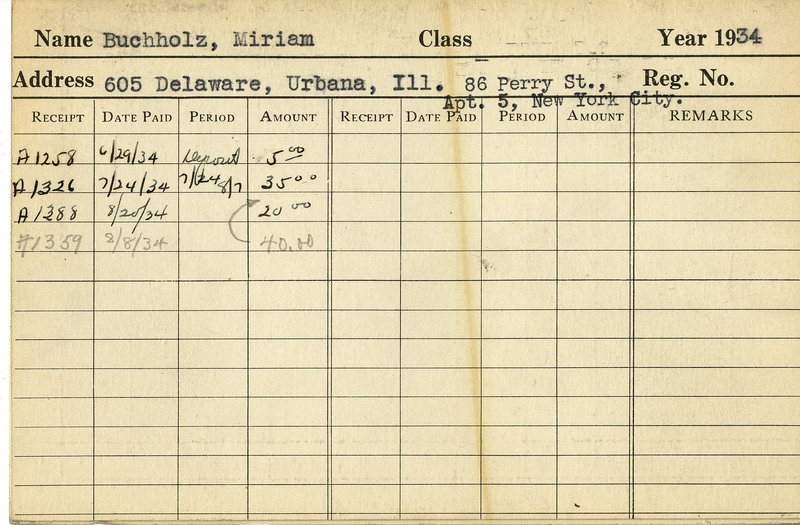 Name Buchholz, Miriam Class Year 1934
Address 605 Delaware, Urbana, Ill. 86 Perry St., Reg. No.
Apt. 5, New York City.
RECEIPT DATE PAID PERIOD AMOUNT RECEIPT DATE PAID PERIOD AMOUNT REMARKS
A1258 6/29/34 Deposit 5.00
A1326 7/24/34 7/24 8/7 35.00
A1388 8/20/34 20.00
#1359 8/8/34 40.00